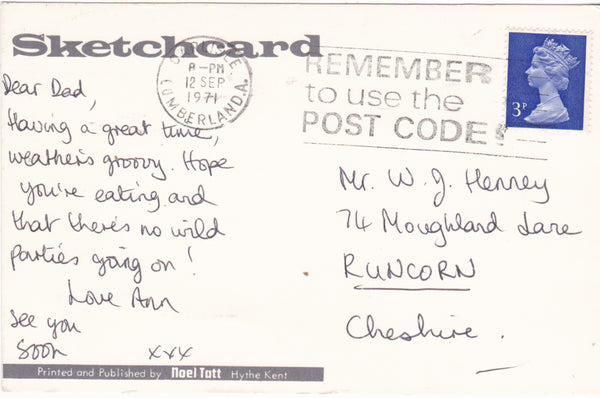 Sketchcard
8-PM
12 SEP
1971
CUMBERLAND.A.
REMEMBER
to use the
POST CODE!
3P
Dear Dad,
Having a great time,
weather's groovy. Hope
you're eating and
that there's no wild
parties going on!
Love Ann
See you
soon xxx
Mr. W. J. Henney
74 Moughland Lane
RUNCORN
Cheshire.
Printed and Published by Noel Tatt Hythe Kent